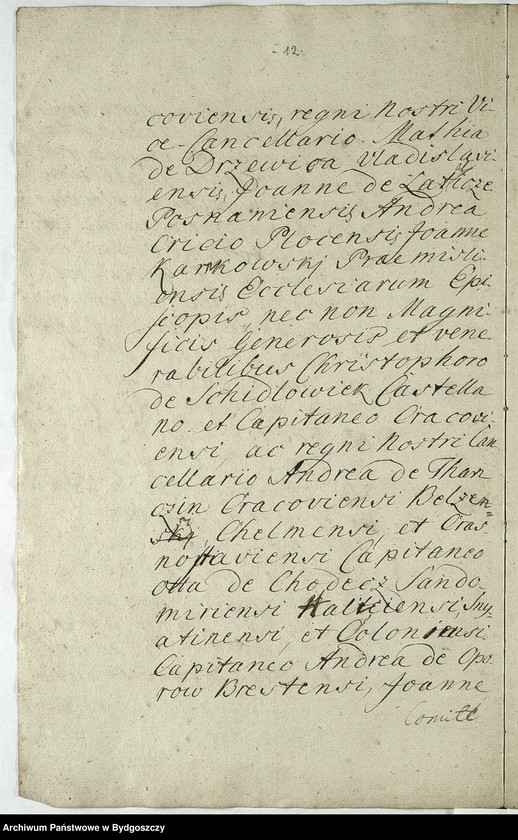 - 12.
coviensis, regni Nostri Vi-
ce-Cancellario. Mathia
de Drzewica Vladislavi-
ensis, Joanne de Laticze
Posnaniensis Andrea
Cricio Plocensis Joanne
Karkowskj Præmisli
ensis Ecclesiarum Epi-
scopis, nec non Magni-
ficis Generosis et vene
rabilibus Christophoro
de Schidlowiek Castella
no. et Capitaneo Cracovi-
ensi, ac regni Nostri Can
cellario Andrea de Than
czin Cracoviensi Belzen=
skj, Chelmensi, et Cras
nostaviensi Capitaneo
Otta de Chodecz Sando
miriensi Haliciensi, Sny-
atinensi, et Coloniensi
Capitaneo Andrea de Opo-
row Brestensi, Joanne
Comite
Archiwum Państwowe w Bydgoszczy